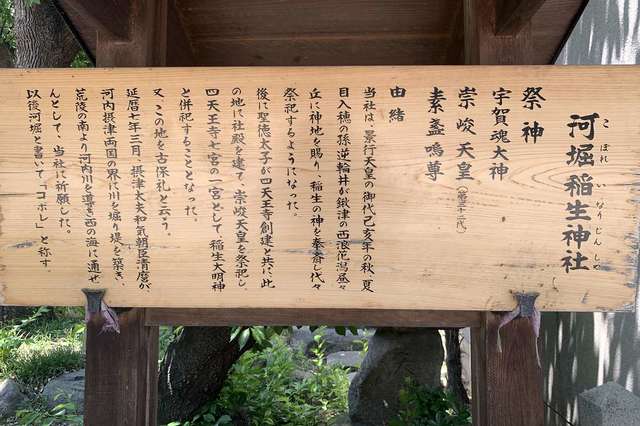 河堀稲生神社
こぼれいなりじんしゃ
祭神
宇賀魂大神
崇峻天皇（第三十二代）
素盞嗚尊
由緒
当社は、景行天皇の御代己亥年の秋、夏
目入穂の孫逆輪井が鍬津の西浪花潟昼々
丘に神地を賜り、稲生の神を奉斎し代々
祭祀するようになった。
後に聖徳太子が四天王寺創建と共に此
の地に社殿を建て、崇峻天皇を祭祀し
四天王寺七宮の一宮として、稲生大明神
と併祀することとなった。
又、この地を古保礼と云う。
延暦七年三月、摂津太夫和気朝臣清麿が
河内摂津両国の界に川を堀り堤を築き、
荒陵の南より河内川を導き西の海に通せ
んとして、当社に祈願した。
以後河堀と書いて、「コボレ」と称す。